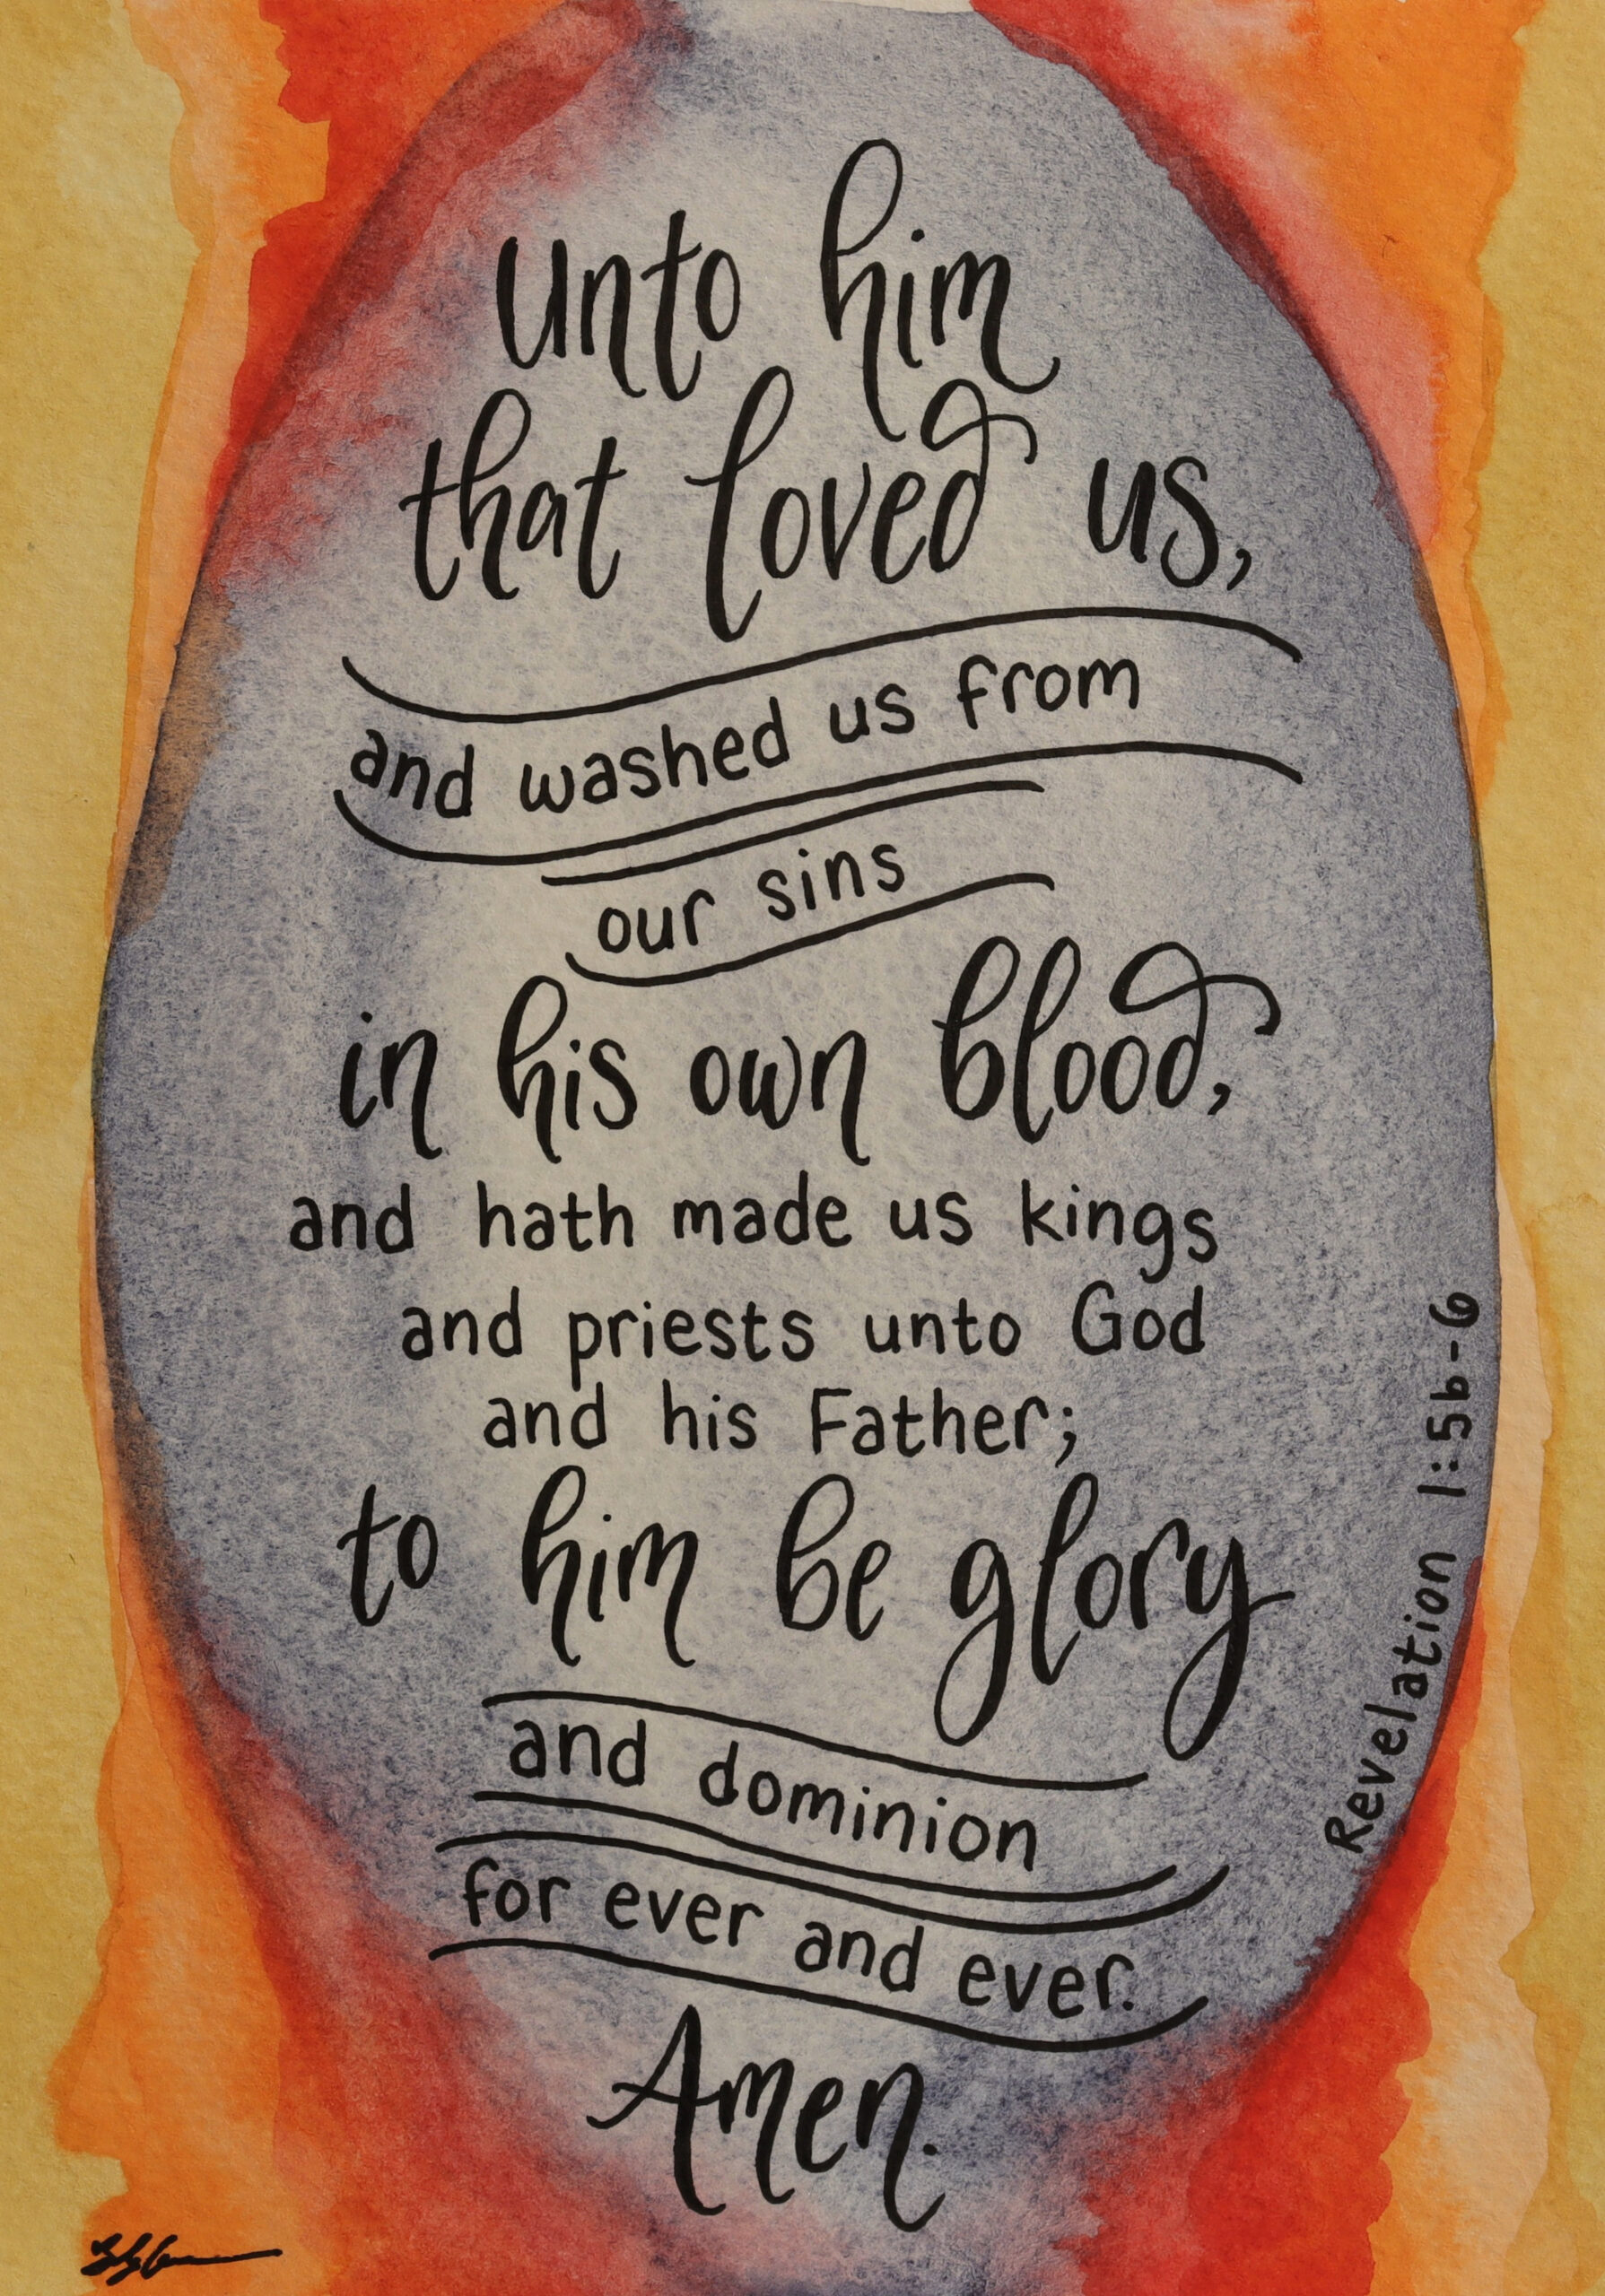 unto him
that loved us,
and washed us from
our sins
in his own blood,
and hath made us kings
and priests unto God
and his Father;
to him be glory
and dominion
for ever and ever.
Amen.
Revelation 1:5b-6